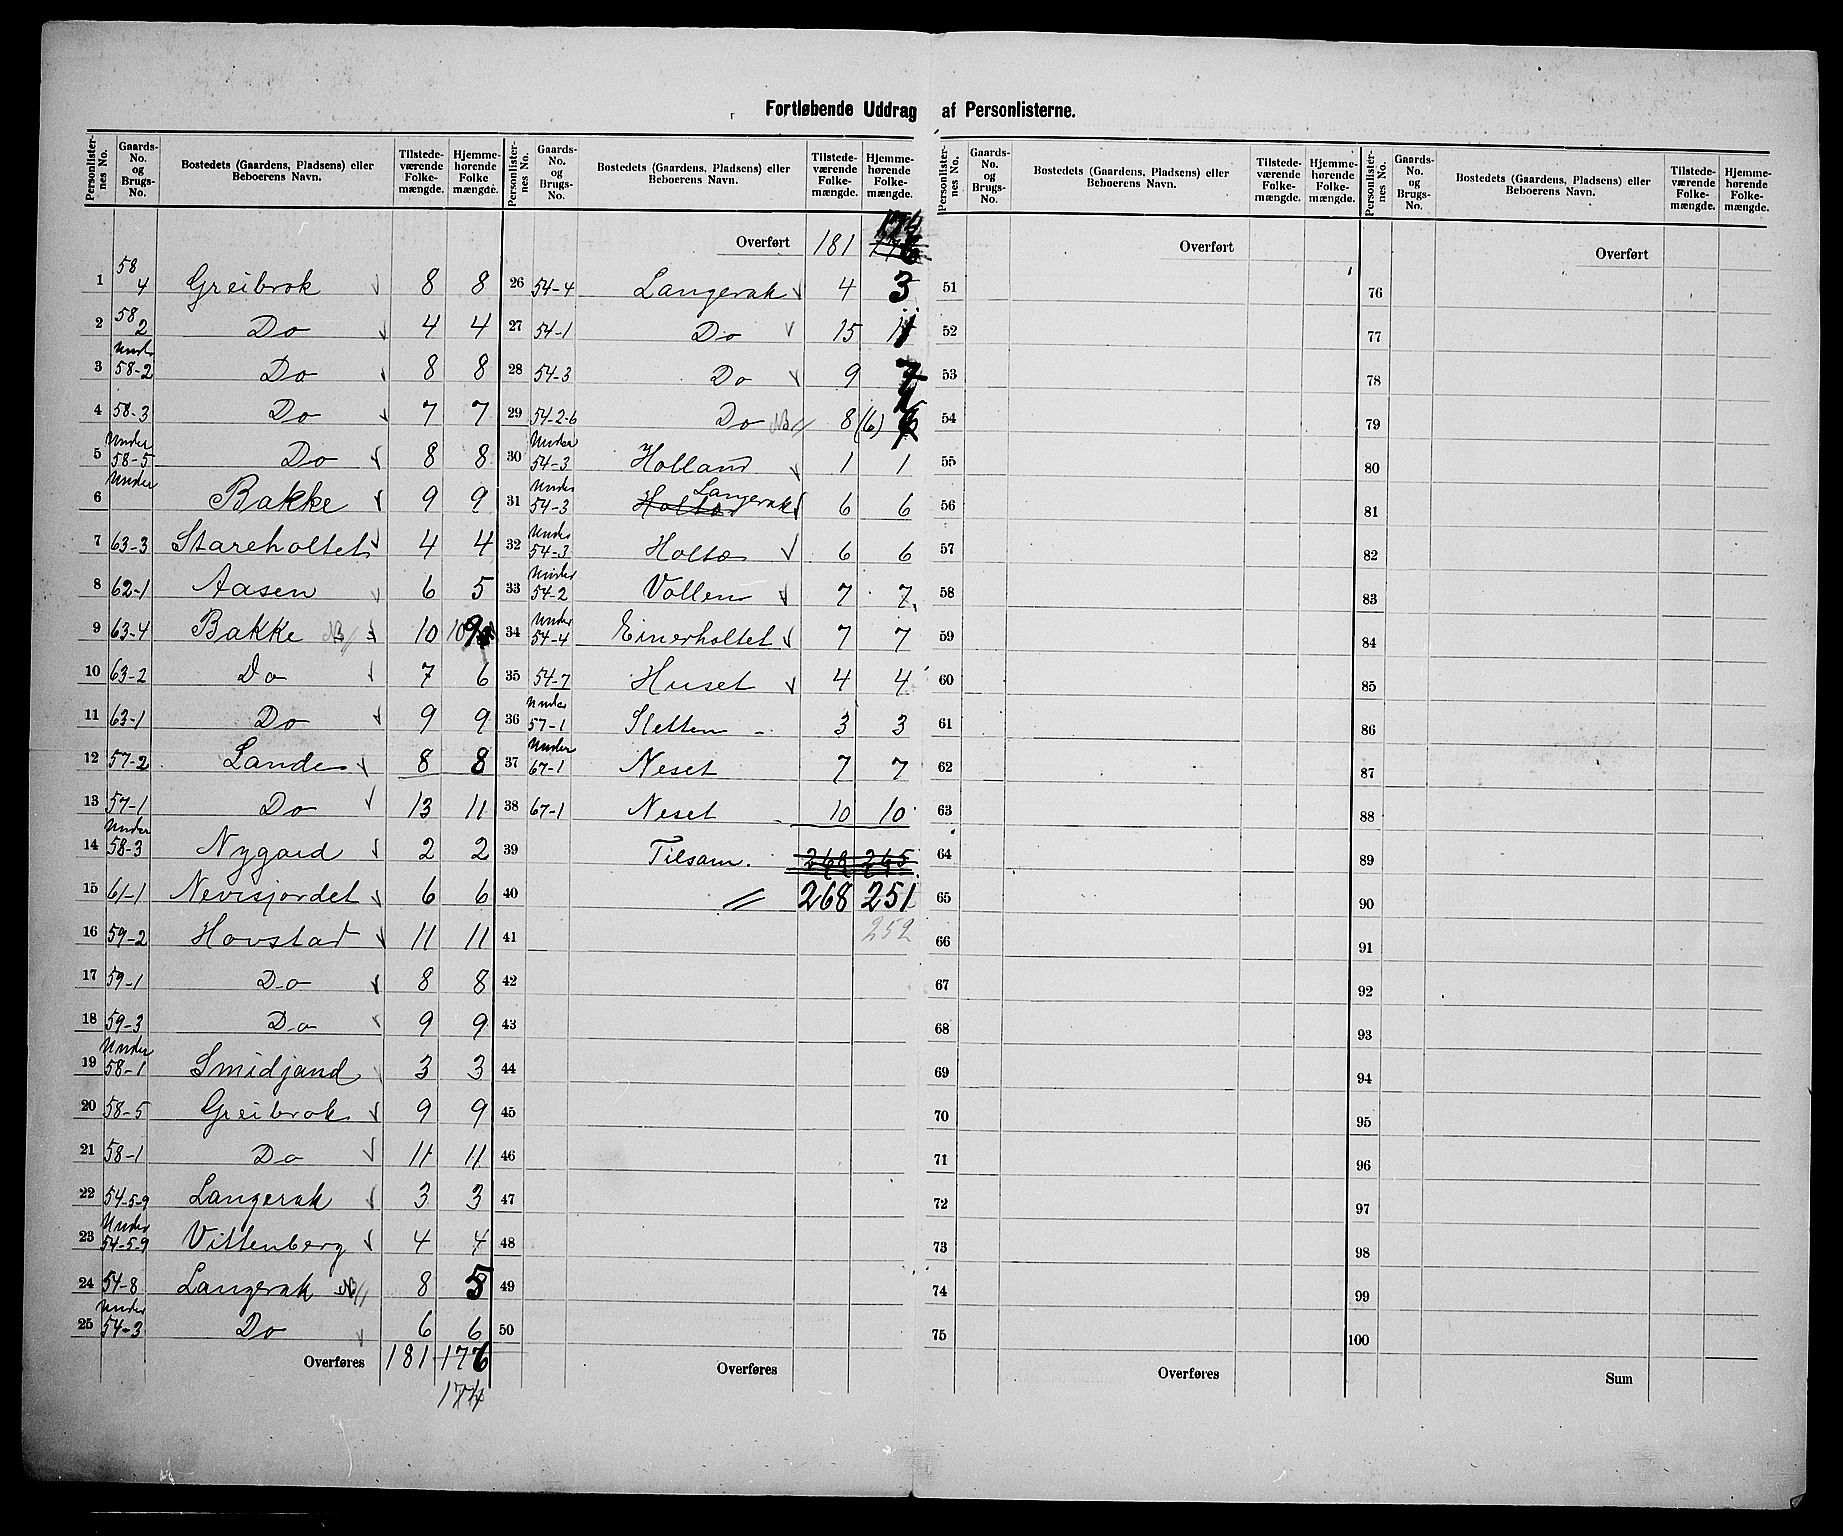 Fortløbende Uddrag af Personlisterne.
Personlisternes No. | Gaards-No. og Brugs-No. | Bostedets (Gaardens, Pladsens) eller Beboerens Navn. | Tilstedeværende Folkemængde. | Hjemmehørende Folkemængde.
1 | 58 4 | Greibrok | 8 | 8
2 | 58 2 | Do | 4 | 4
3 | Under 58-2 | Do | 8 | 8
4 | 58-3 | Do | 7 | 7
5 | Under 58-5 | Do | 8 | 8
6 | Under | Bakke | 9 | 9
7 | 63-3 | Stareholtet | 4 | 4
8 | 62-1 | Aasen | 6 | 5
9 | 63-4 | Bakke NB | 10 | 10 9
10 | 63-2 | Do | 7 | 6
11 | 63-1 | Do | 9 | 9
12 | 57-2 | Lande | 8 | 8
13 | 57-1 | Do | 13 | 11
14 | Under 58-3 | Nygard | 2 | 2
15 | 61-1 | Nevisjordet | 6 | 6
16 | 59-2 | Hovstad | 11 | 11
17 | 59-1 | Do | 8 | 8
18 | 59-3 | Do | 9 | 9
19 | Under 58-1 | Smidjand | 3 | 3
20 | 58-5 | Greibrok | 9 | 9
21 | 58-1 | Do | 11 | 11
22 | 54-5-9 | Langerak | 3 | 3
23 | Under 54-5-9 | Vittenberg | 4 | 4
24 | 54-8 | Langerak NB | 8 | 5
25 | Under 54-3 | Do | 6 | 6
Overføres | 181 | 176
174
Personlisternes No. | Gaards-No. og Brugs-No. | Bostedets (Gaardens, Pladsens) eller Beboerens Navn. | Tilstedeværende Folkemængde. | Hjemmehørende Folkemængde.
Overført | 181 | 174
26 | 54-4 | Langerak | 4 | 3
27 | 54-1 | Do | 15 | 11
28 | 54-3 | Do | 9 | 7
29 | 54-2-6 | Do NB | 8 (6)
30 | Under 54-3 | Holland | 1 | 1
31 | Under 54-3 | Holtao Langerak | 6 | 6
32 | Under 54-3 | Holtao | 6 | 6
33 | Under 54-2 | Vollen | 7 | 7
34 | Under 54-4 | Einerholtet | 7 | 7
35 | 54-7 | Huset | 4 | 4
36 | Under 57-1 | Sletten | 3 | 3
37 | Under 67-1 | Neset | 7 | 7
38 | 67-1 | Neset | 10 | 10
39 | Tilsam. | 268 | 265
40 | // | 268 | 251
41 | 252
42
43
44
45
46
47
48
49
50
Overføres
Personlisternes No. | Gaards-No. og Brugs-No. | Bostedets (Gaardens, Pladsens) eller Beboerens Navn. | Tilstedeværende Folkemængde. | Hjemmehørende Folkemængde.
Overført
51
52
53
54
55
56
57
58
59
60
61
62
63
64
65
66
67
68
69
70
71
72
73
74
75
Overføres
Personlisternes No. | Gaards-No. og Brugs-No. | Bostedets (Gaardens, Pladsens) eller Beboerens Navn. | Tilstedeværende Folkemængde. | Hjemmehørende Folkemængde.
Overført
76
77
78
79
80
81
82
83
84
85
86
87
88
89
90
91
92
93
94
95
96
97
98
99
100
Sum